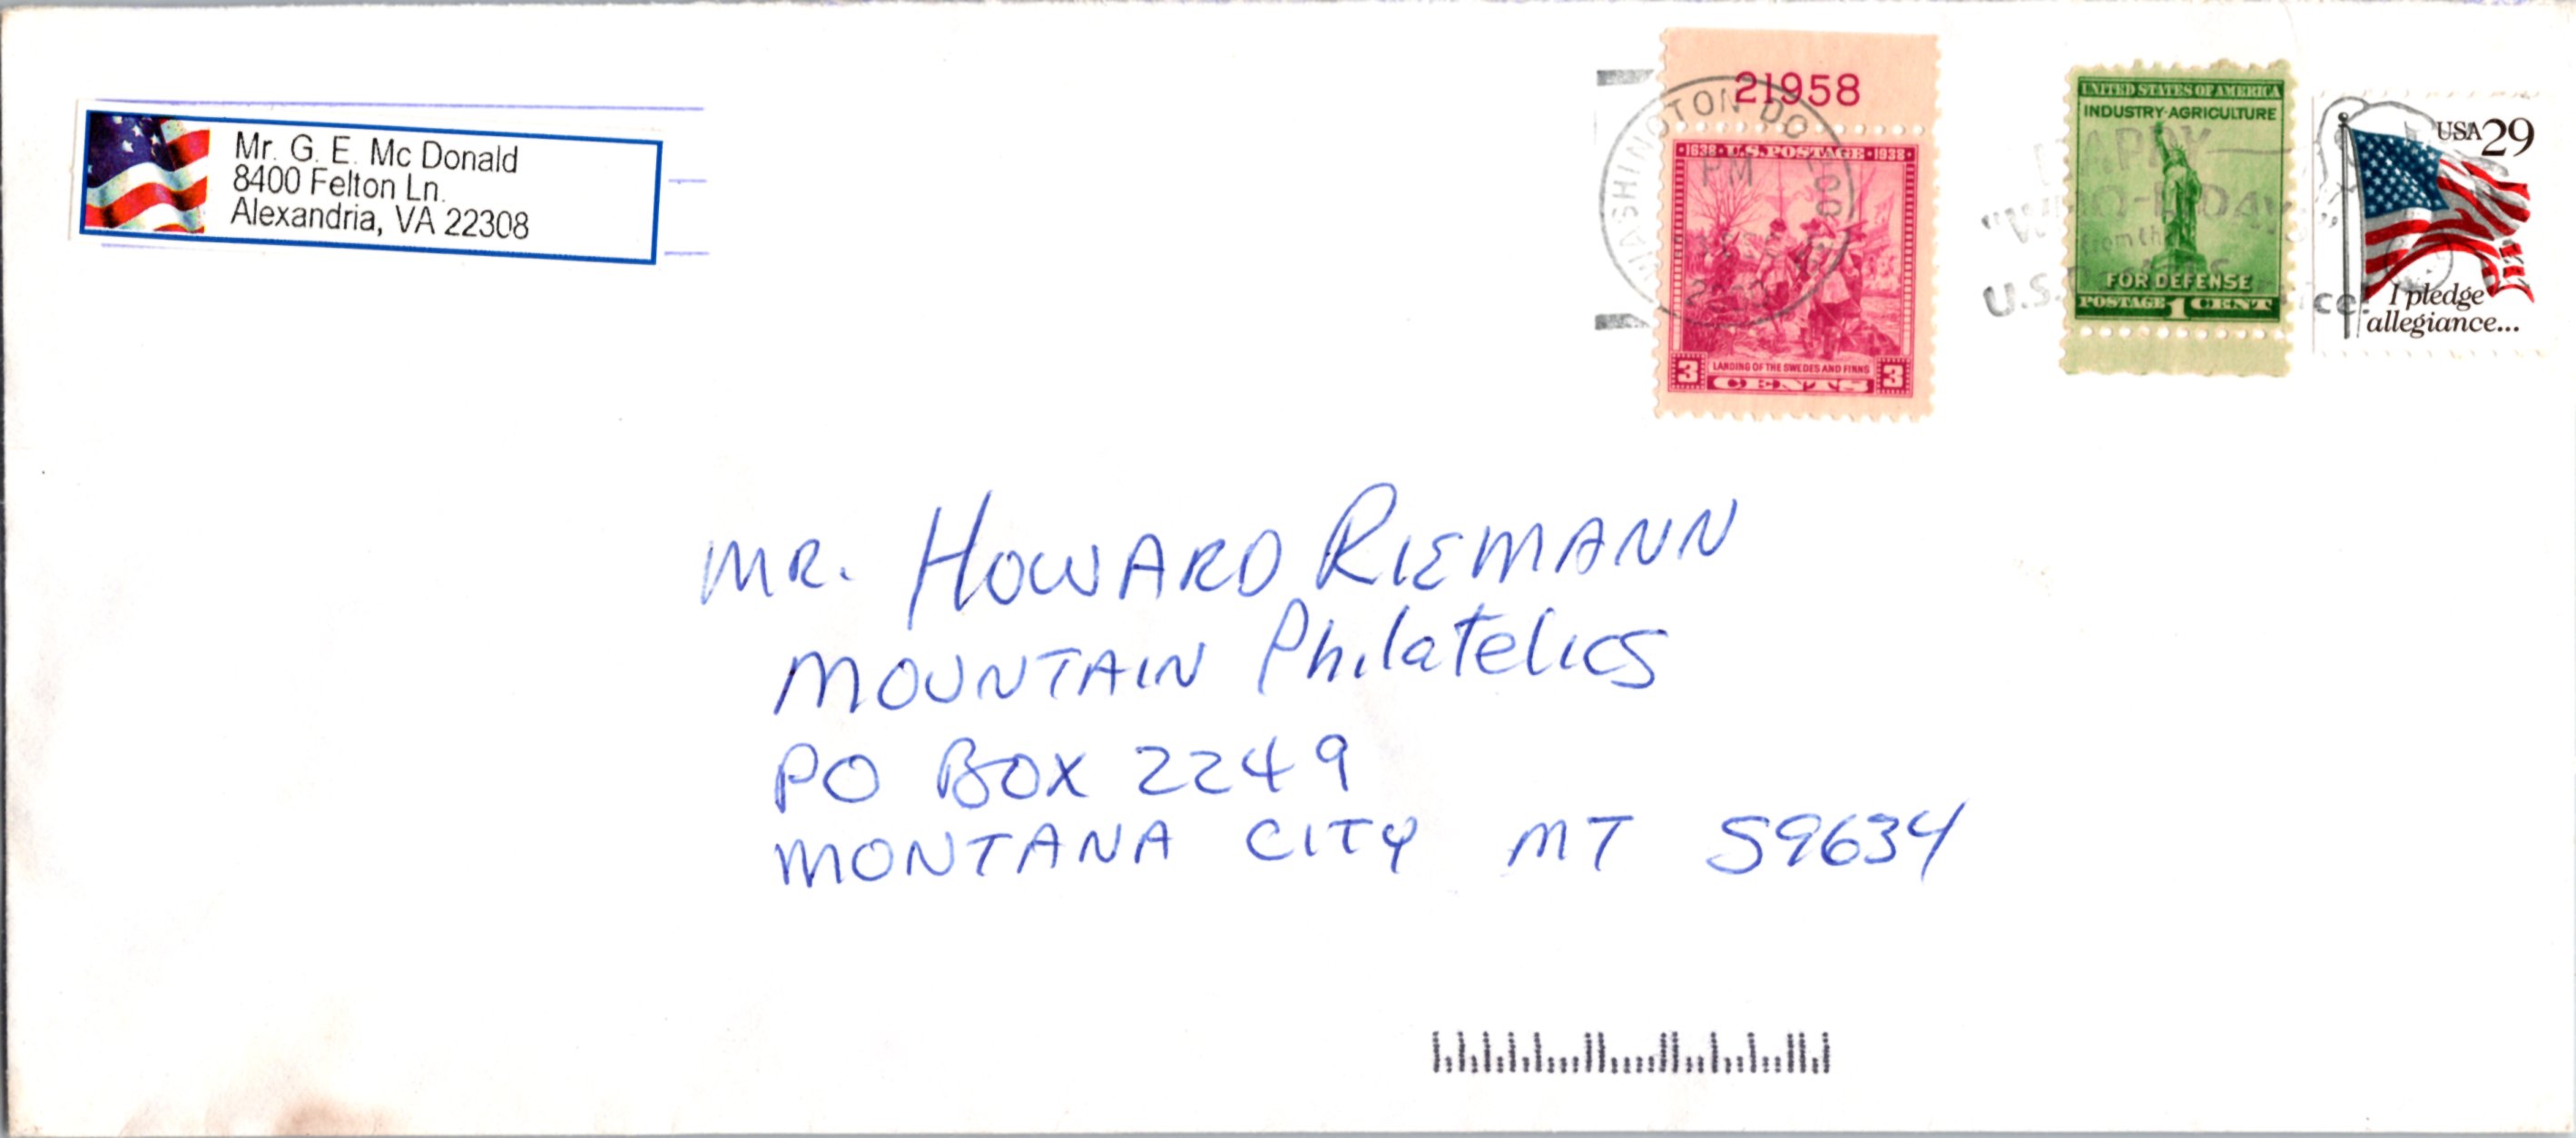 Mr. G. E. Mc Donald
8400 Felton Ln.
Alexandria, VA 22308
21958
WASHINGTON DC
PM
1638 · U.S. POSTAGE · 1938
LANDING OF THE SWEDES AND FINNS
3 CENTS 3
UNITED STATES OF AMERICA
INDUSTRY·AGRICULTURE
FOR DEFENSE
POSTAGE 1 CENT
from the
U.S.
USA 29
I pledge
allegiance...
MR. HOWARD RIEMANN
MOUNTAIN Philatelics
PO BOX 2249
MONTANA CITY MT 59634